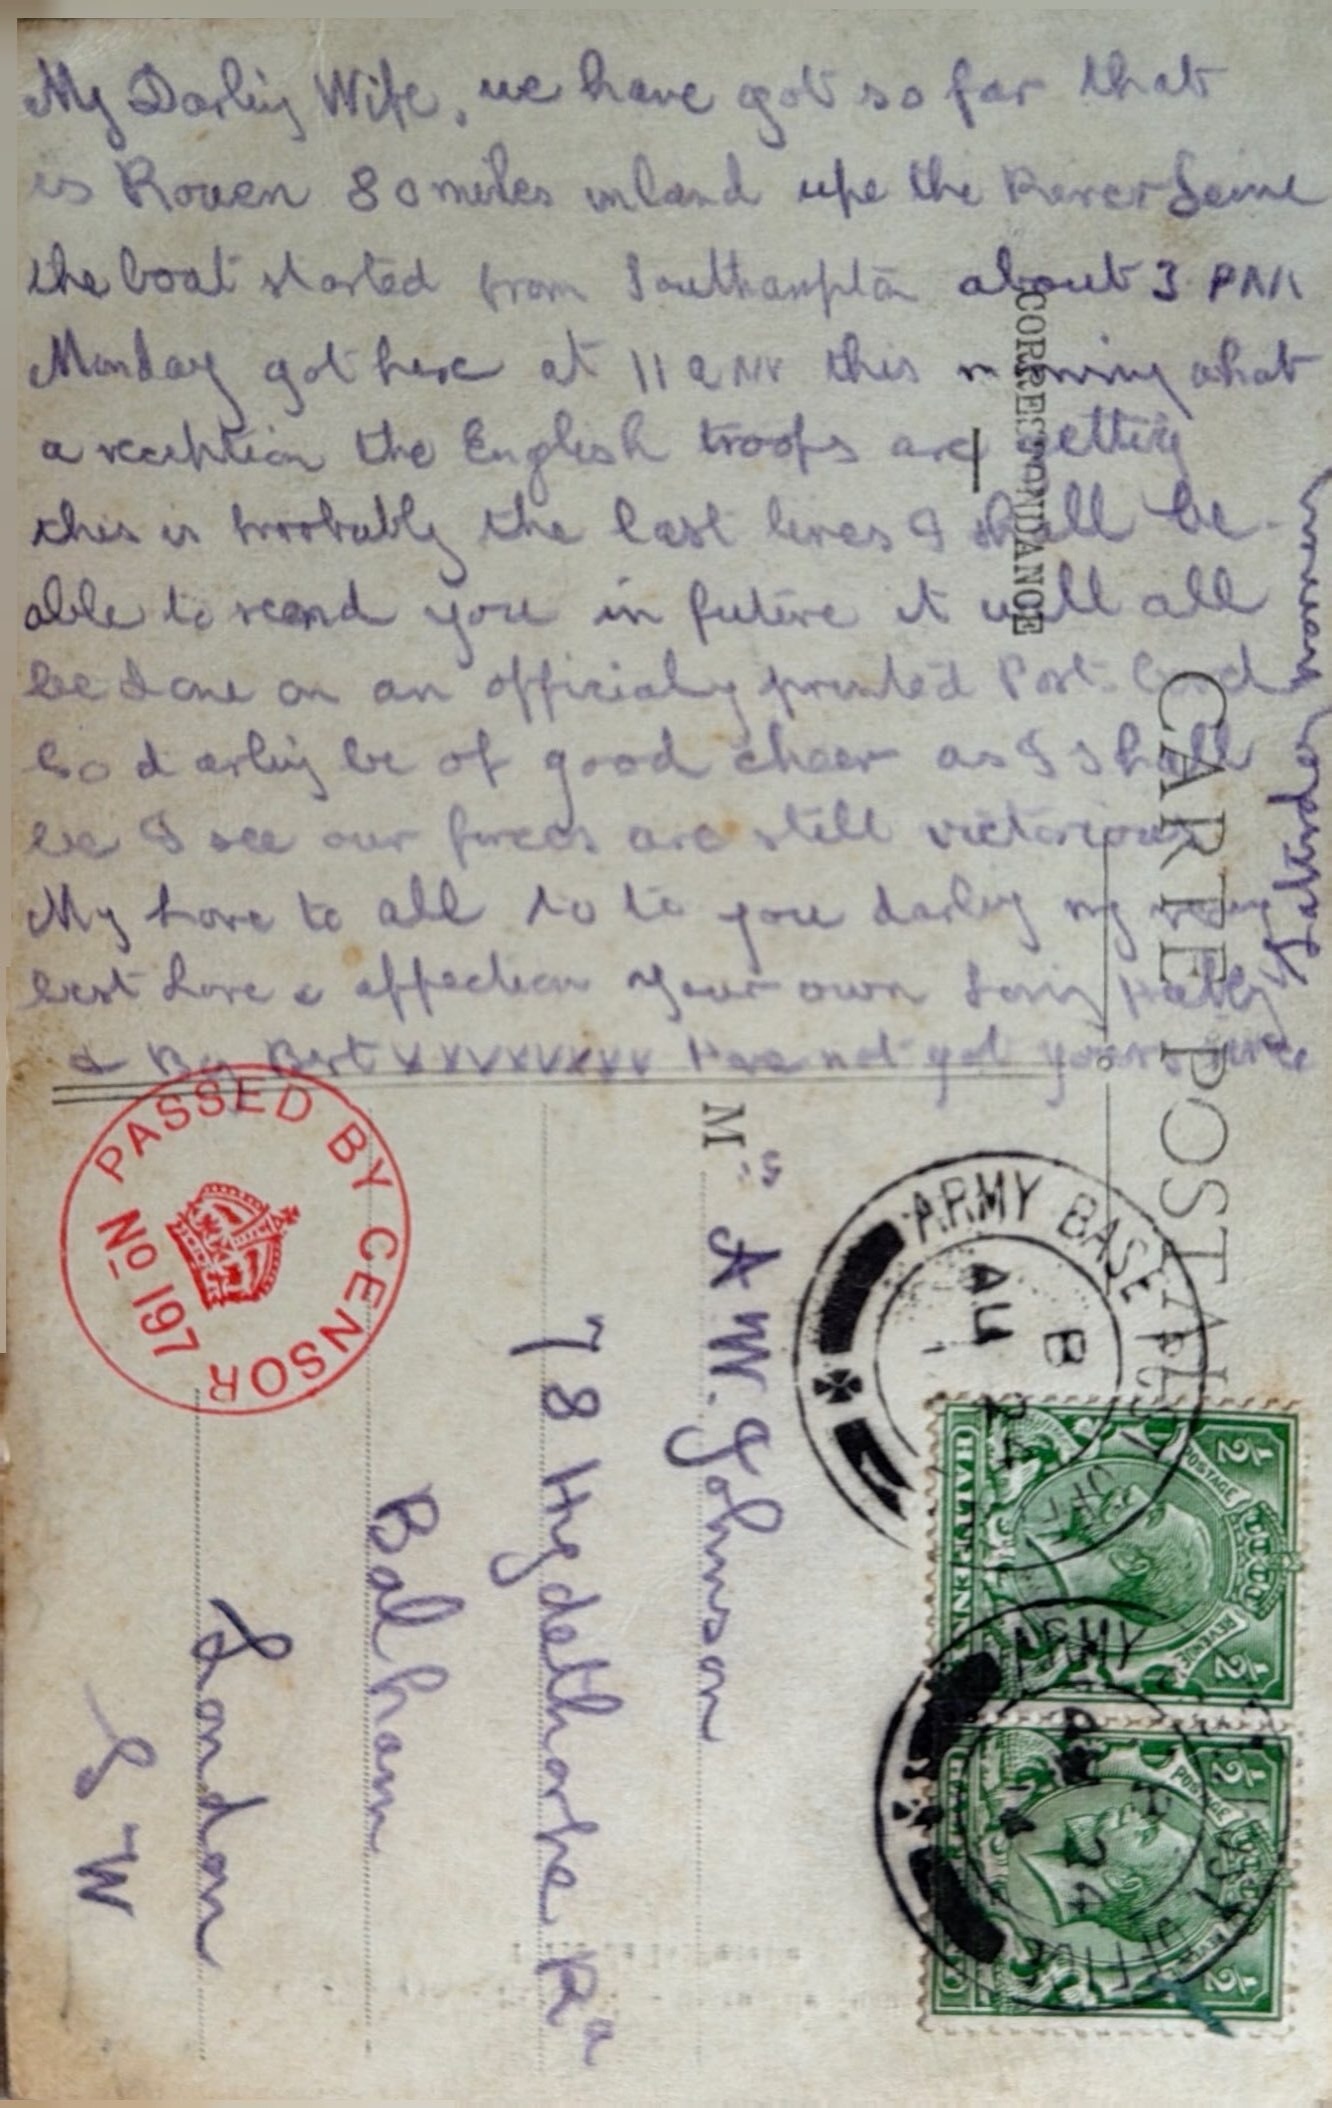 My Darling Wife, we have got so far that
is Rouen 80 miles inland upe the River Seine
the boat started from Southampton about 3 PM
Monday got here at 11 am this morning what
a reception the English troops are getting
this is probably the last lines I shall be
able to send you in future it will all
be done on an officialy printed Post Card
So darling be of good cheer as I shall
be I see our forces are still victorious
My love to all so to you darling my very
best love & affection your own loving Hubby
& Boy Bert xxxxxxxxx Have not got yours since
Saturday
CORRESPONDANCE
CARTE POSTALE
M rs A W. Johnson
78 Hydethorpe Rd
Balham
London
S W
PASSED BY CENSOR
No 197
ARMY BASE POST OFFICE
B
AU 24
ARMY POST OFFICE
B
24
POSTAGE REVENUE
½ ½
HALFPENNY
POSTAGE REVENUE
½ ½